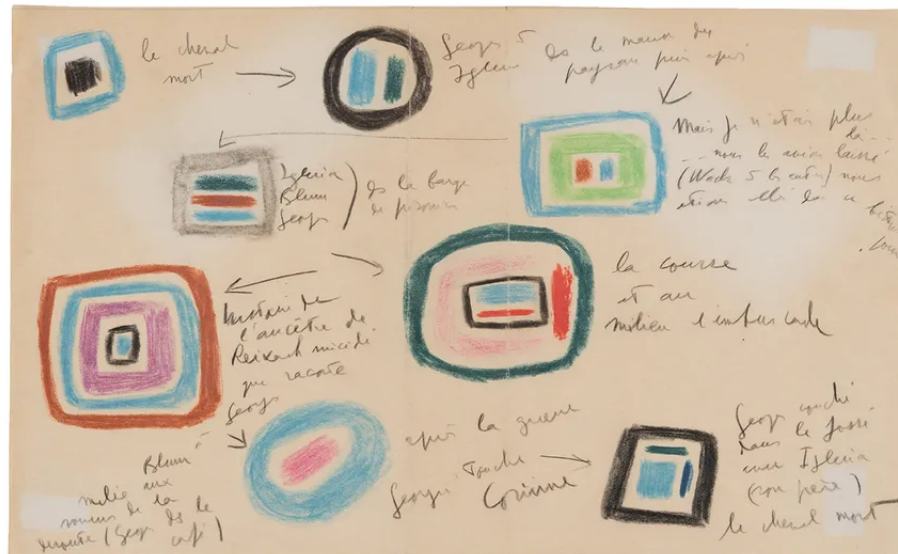 le cheval
mort
Georges
Iglésia ds la maison des
paysans puis après
Mais je n'étais plus
là
nous le avion laissé
(Wack 5 ) nous
étions
Iglésia
Blum
Georges
ds la barge
de prisonniers
la course
et au
milieu l'embuscade
histoire de
l'ancêtre de
Reixach suicidé
que raconte
Georges
à
Blum
mêlée aux
de la
déroute (Georges ds le
café)
après la guerre
Georges Touche
Corinne
Georges couché
dans le fossé
avec Iglésia
(son père)
le cheval mort